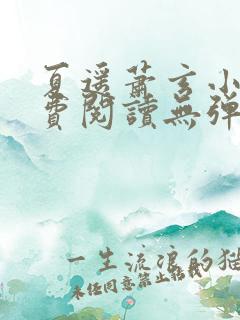 夏遥萧玄小
费阅读无弹
一生流浪的猫
未经同意禁止转载